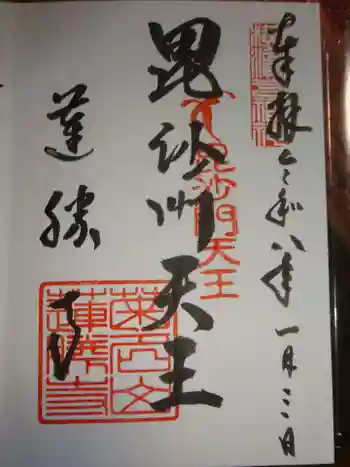 奉拝 令和八年 一月三日
毘沙門天王
毘沙門天王
蓮勝寺